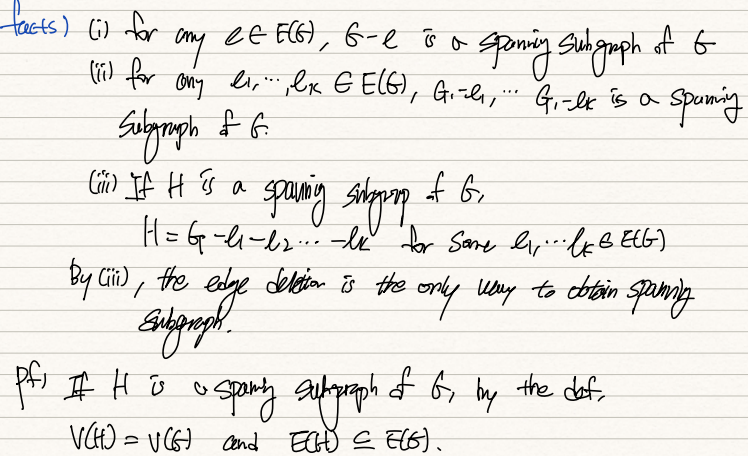 facts) (i) for any e ∈ E(G), G-e is a spanning subgraph of G
(ii) for any e1, ⋯, ek ∈ E(G), G.-e1, ⋯ G.-ek is a spanning
Subgraph of G.
(iii) If H is a spanning subgraph of G,
H = G -e1 -e2 ⋯ -ek for some e1, ⋯ ek ∈ E(G)
By (iii), the edge deletion is the only way to obtain spanning
subgraph.
pf) If H is a spanning subgraph of G, by the def,
V(H) = V(G) and E(H) ⊆ E(G).